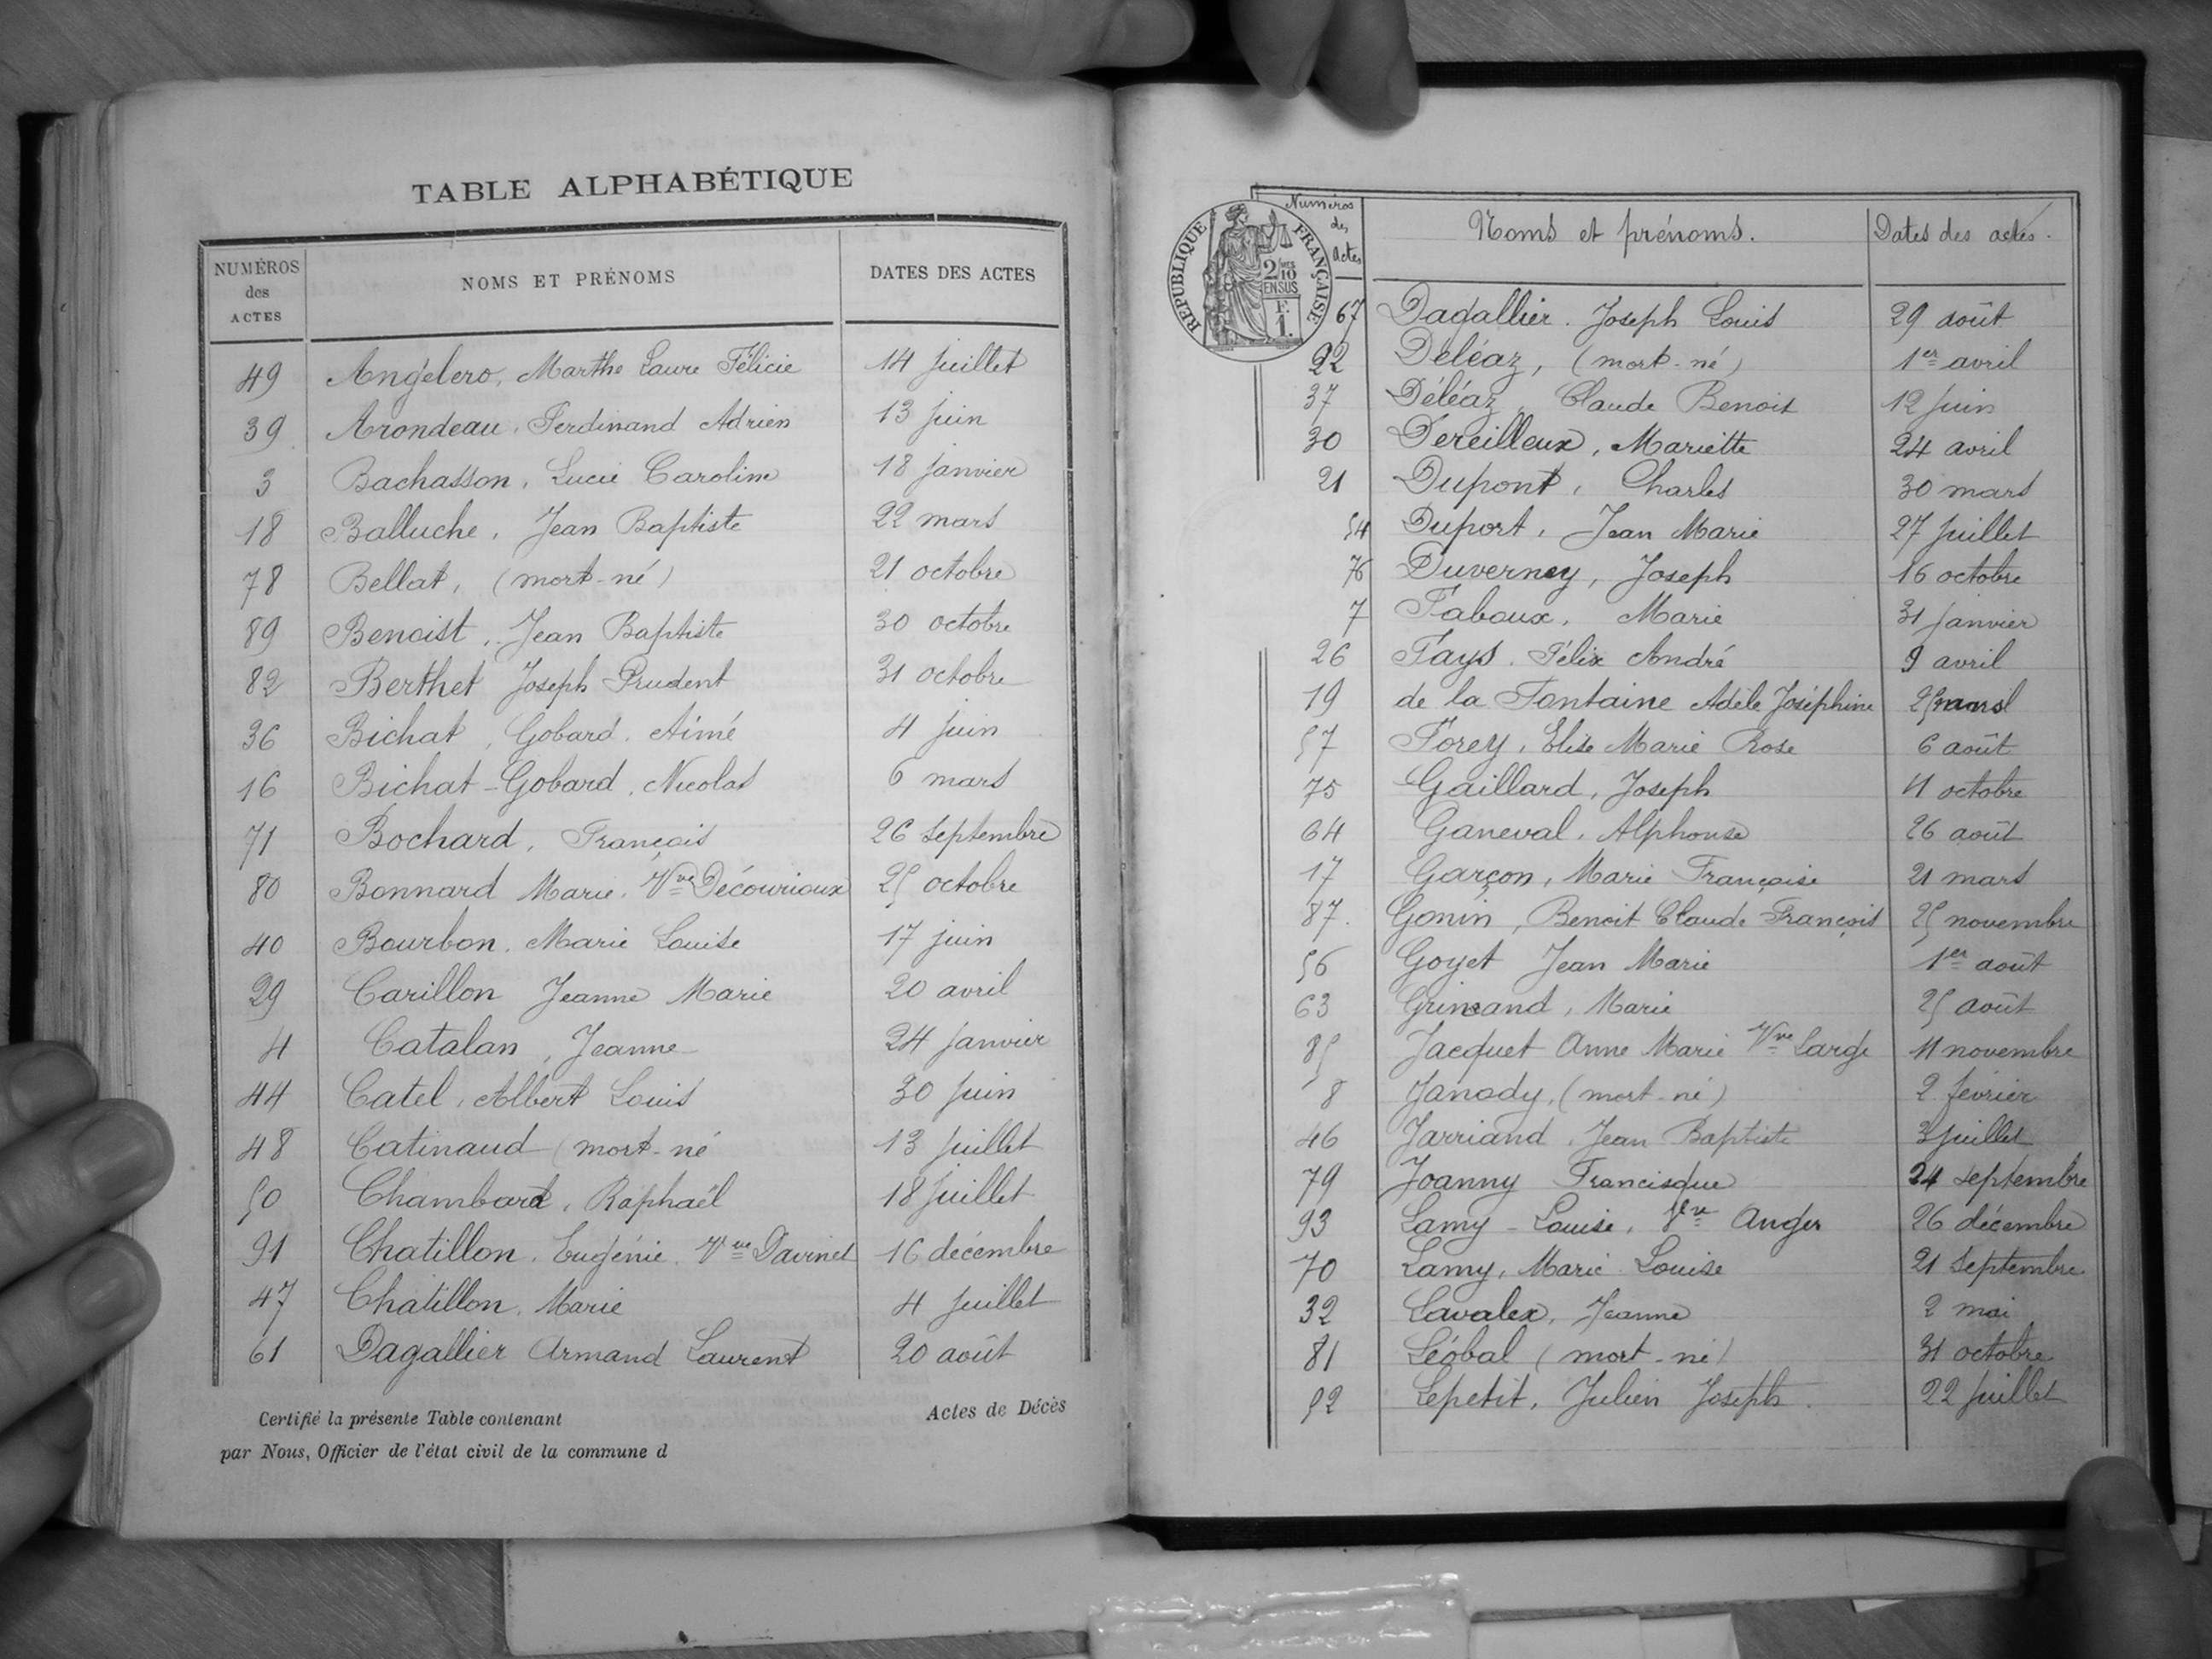 TABLE ALPHABÉTIQUE
NUMÉROS des ACTES NOMS ET PRÉNOMS DATES DES ACTES
49 Angelero, Marthe Laure Félicie 14 juillet
39 Arondeau, Ferdinand Adrien 13 juin
3 Bachasson, Lucie Caroline 18 janvier
18 Balluche, Jean Baptiste 22 mars
78 Bellat, (mort-né) 21 octobre
89 Benoist, Jean Baptiste 30 octobre
82 Berthet Joseph Prudent 31 octobre
36 Bichat, Gobard, Aimé 4 juin
16 Bichat-Gobard, Nicolas 6 mars
71 Bochard, François 26 septembre
80 Bonnard Marie, Vve Décourioux 25 octobre
40 Bourbon, Marie Louise 17 juin
29 Carillon Jeanne Marie 20 avril
4 Catalan, Jeanne 24 janvier
44 Catel, Albert Louis 30 juin
48 Catinaud (mort-né 13 juillet
50 Chambard, Raphaël 18 juillet
91 Chatillon, Eugénie, Vve Davinet 16 décembre
47 Chatillon, Marie 4 juillet
61 Dagallier Armand Laurent 20 août
Certifié la présente Table contenant Actes de Décès
par Nous, Officier de l'état civil de la commune d
RÉPUBLIQUE FRANÇAISE
2/10 EN SUS
F. 1.
Numéros des actes Noms et prénoms. Dates des actes.
67 Dagallier, Joseph Louis 29 août
22 Déléaz, (mort-né) 1er avril
37 Déléaz, Claude Benoit 12 juin
30 Dereilleux, Mariette 24 avril
21 Dupont, Charles 30 mars
54 Duport, Jean Marie 27 juillet
76 Duverney, Joseph 16 octobre
7 Faboux, Marie 31 janvier
26 Fays, Félix André 9 avril
19 de la Fontaine Adèle Joséphine 25 mars
57 Forey, Elise Marie Rose 6 août
75 Gaillard, Joseph 11 octobre
64 Ganeval, Alphonse 26 août
17 Garçon, Marie Françoise 21 mars
87. Gonin, Benoit Claude François 25 novembre
56 Goyet Jean Marie 1er août
63 Grimand, Marie 25 août
85 Jacquet Anne Marie Vve Large 11 novembre
8 Janody, (mort-né) 2 février
46 Jarriand, Jean Baptiste 3 juillet
79 Joanny Francisque 24 septembre
93 Lamy-Louise, Vve Anger 26 décembre
70 Lamy, Marie Louise 21 Septembre
32 Lavalex, Jeanne 2 mai
81 Léobal (mort-né) 31 octobre
52 Lepetit, Julien Joseph. 22 juillet